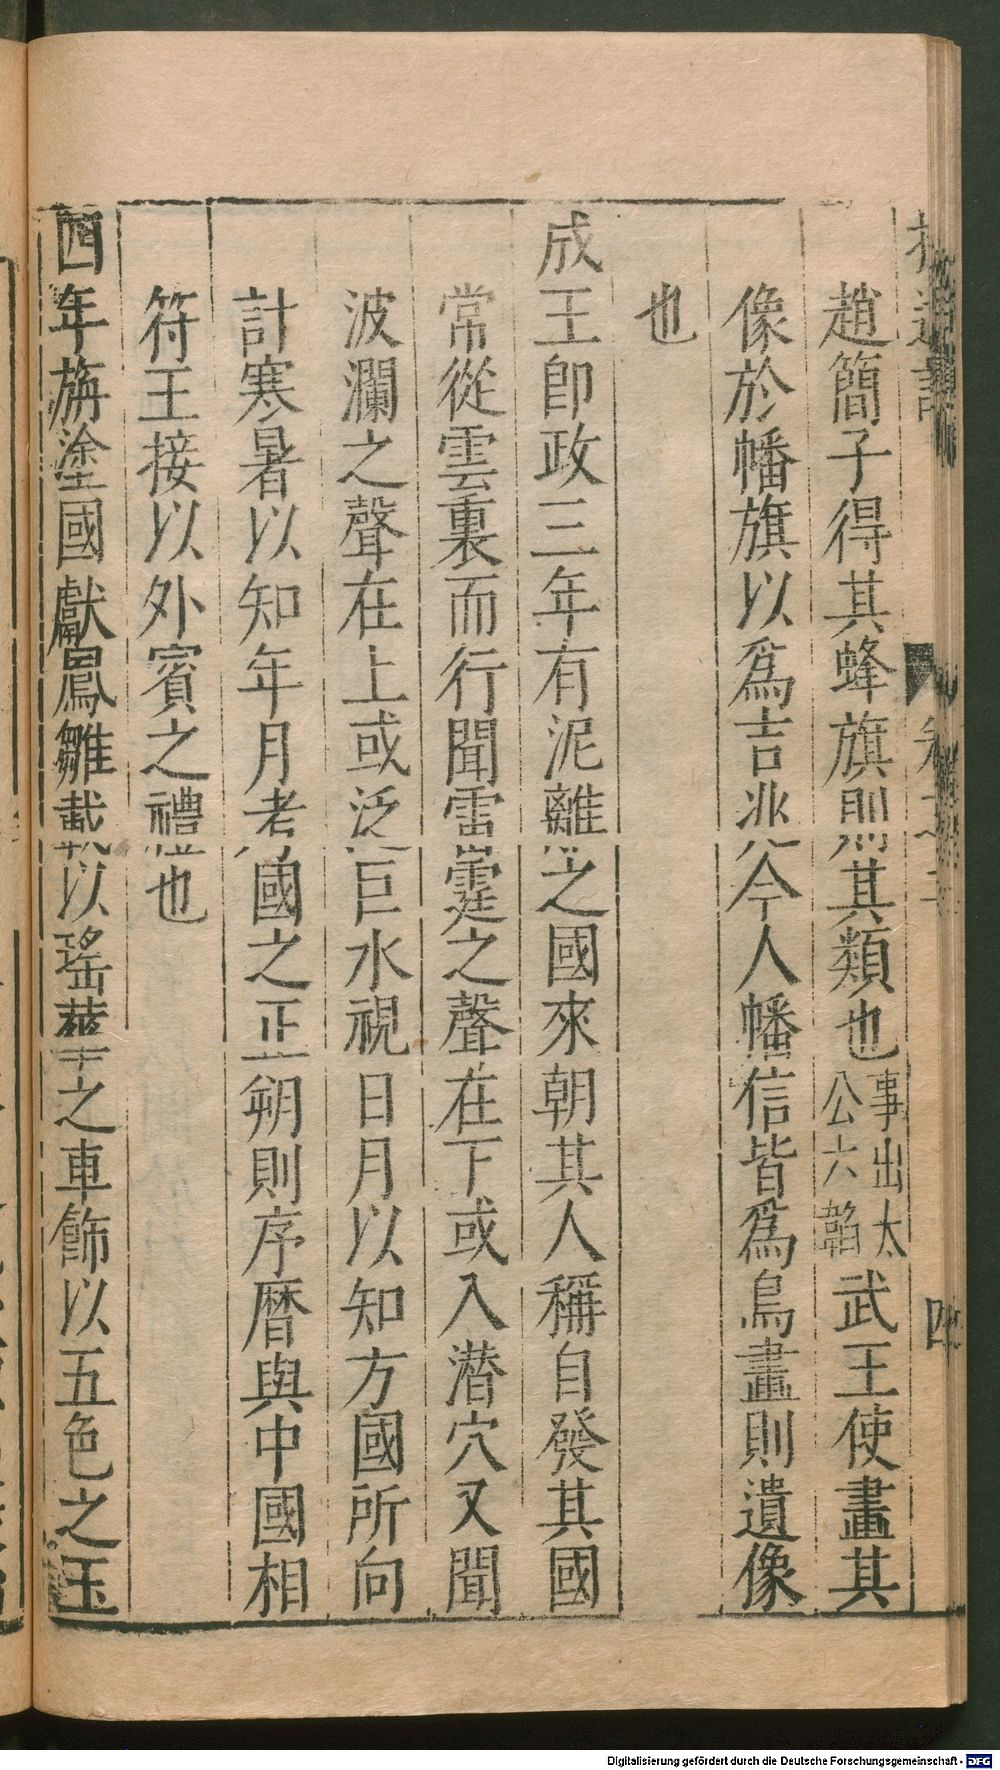 趙簡子得其蜂旗則其類也事出太公六韜武王使畫其
像於幡旗以爲吉兆今人幡信皆爲鳥畫則遺像
也
成王卽政三年有泥離之國來朝其人稱自發其國
常從雲裏而行聞雷霆之聲在下或入潜穴又聞
波瀾之聲在上或泛巨水視日月以知方國所向
計寒暑以知年月考國之正朔則序曆與中國相
符王接以外賓之禮也
四年旃塗國獻鳳雛載以瑤華之車飾以五色之玉
Digitalisierung gefördert durch die Deutsche Forschungsgemeinschaft - DFG